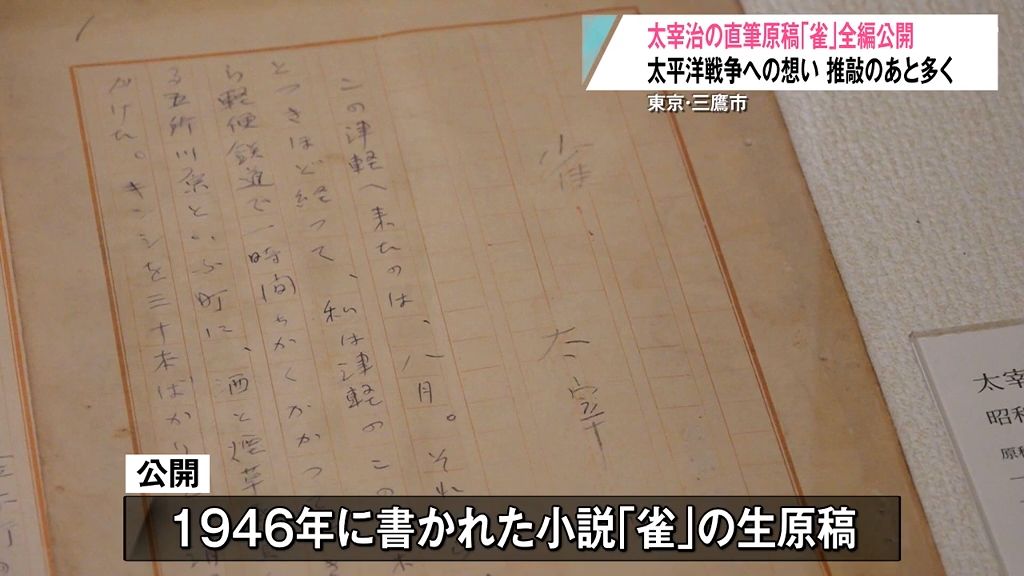 太宰治の直筆原稿「雀」全編公開
太平洋戦争への想い 推敲のあと多く
東京・三鷹市
雀
太宰
この津軽へ来たのは、八月。それ
とつきほど経つて、私は津軽のこの
ら軽便鉄道で一時間ちかくかかつて
る五所川原といふ町に、酒と煙草
かけた。キンシを三十本ばかり
太宰
昭和
原稿
公開
1946年に書かれた小説「雀」の生原稿